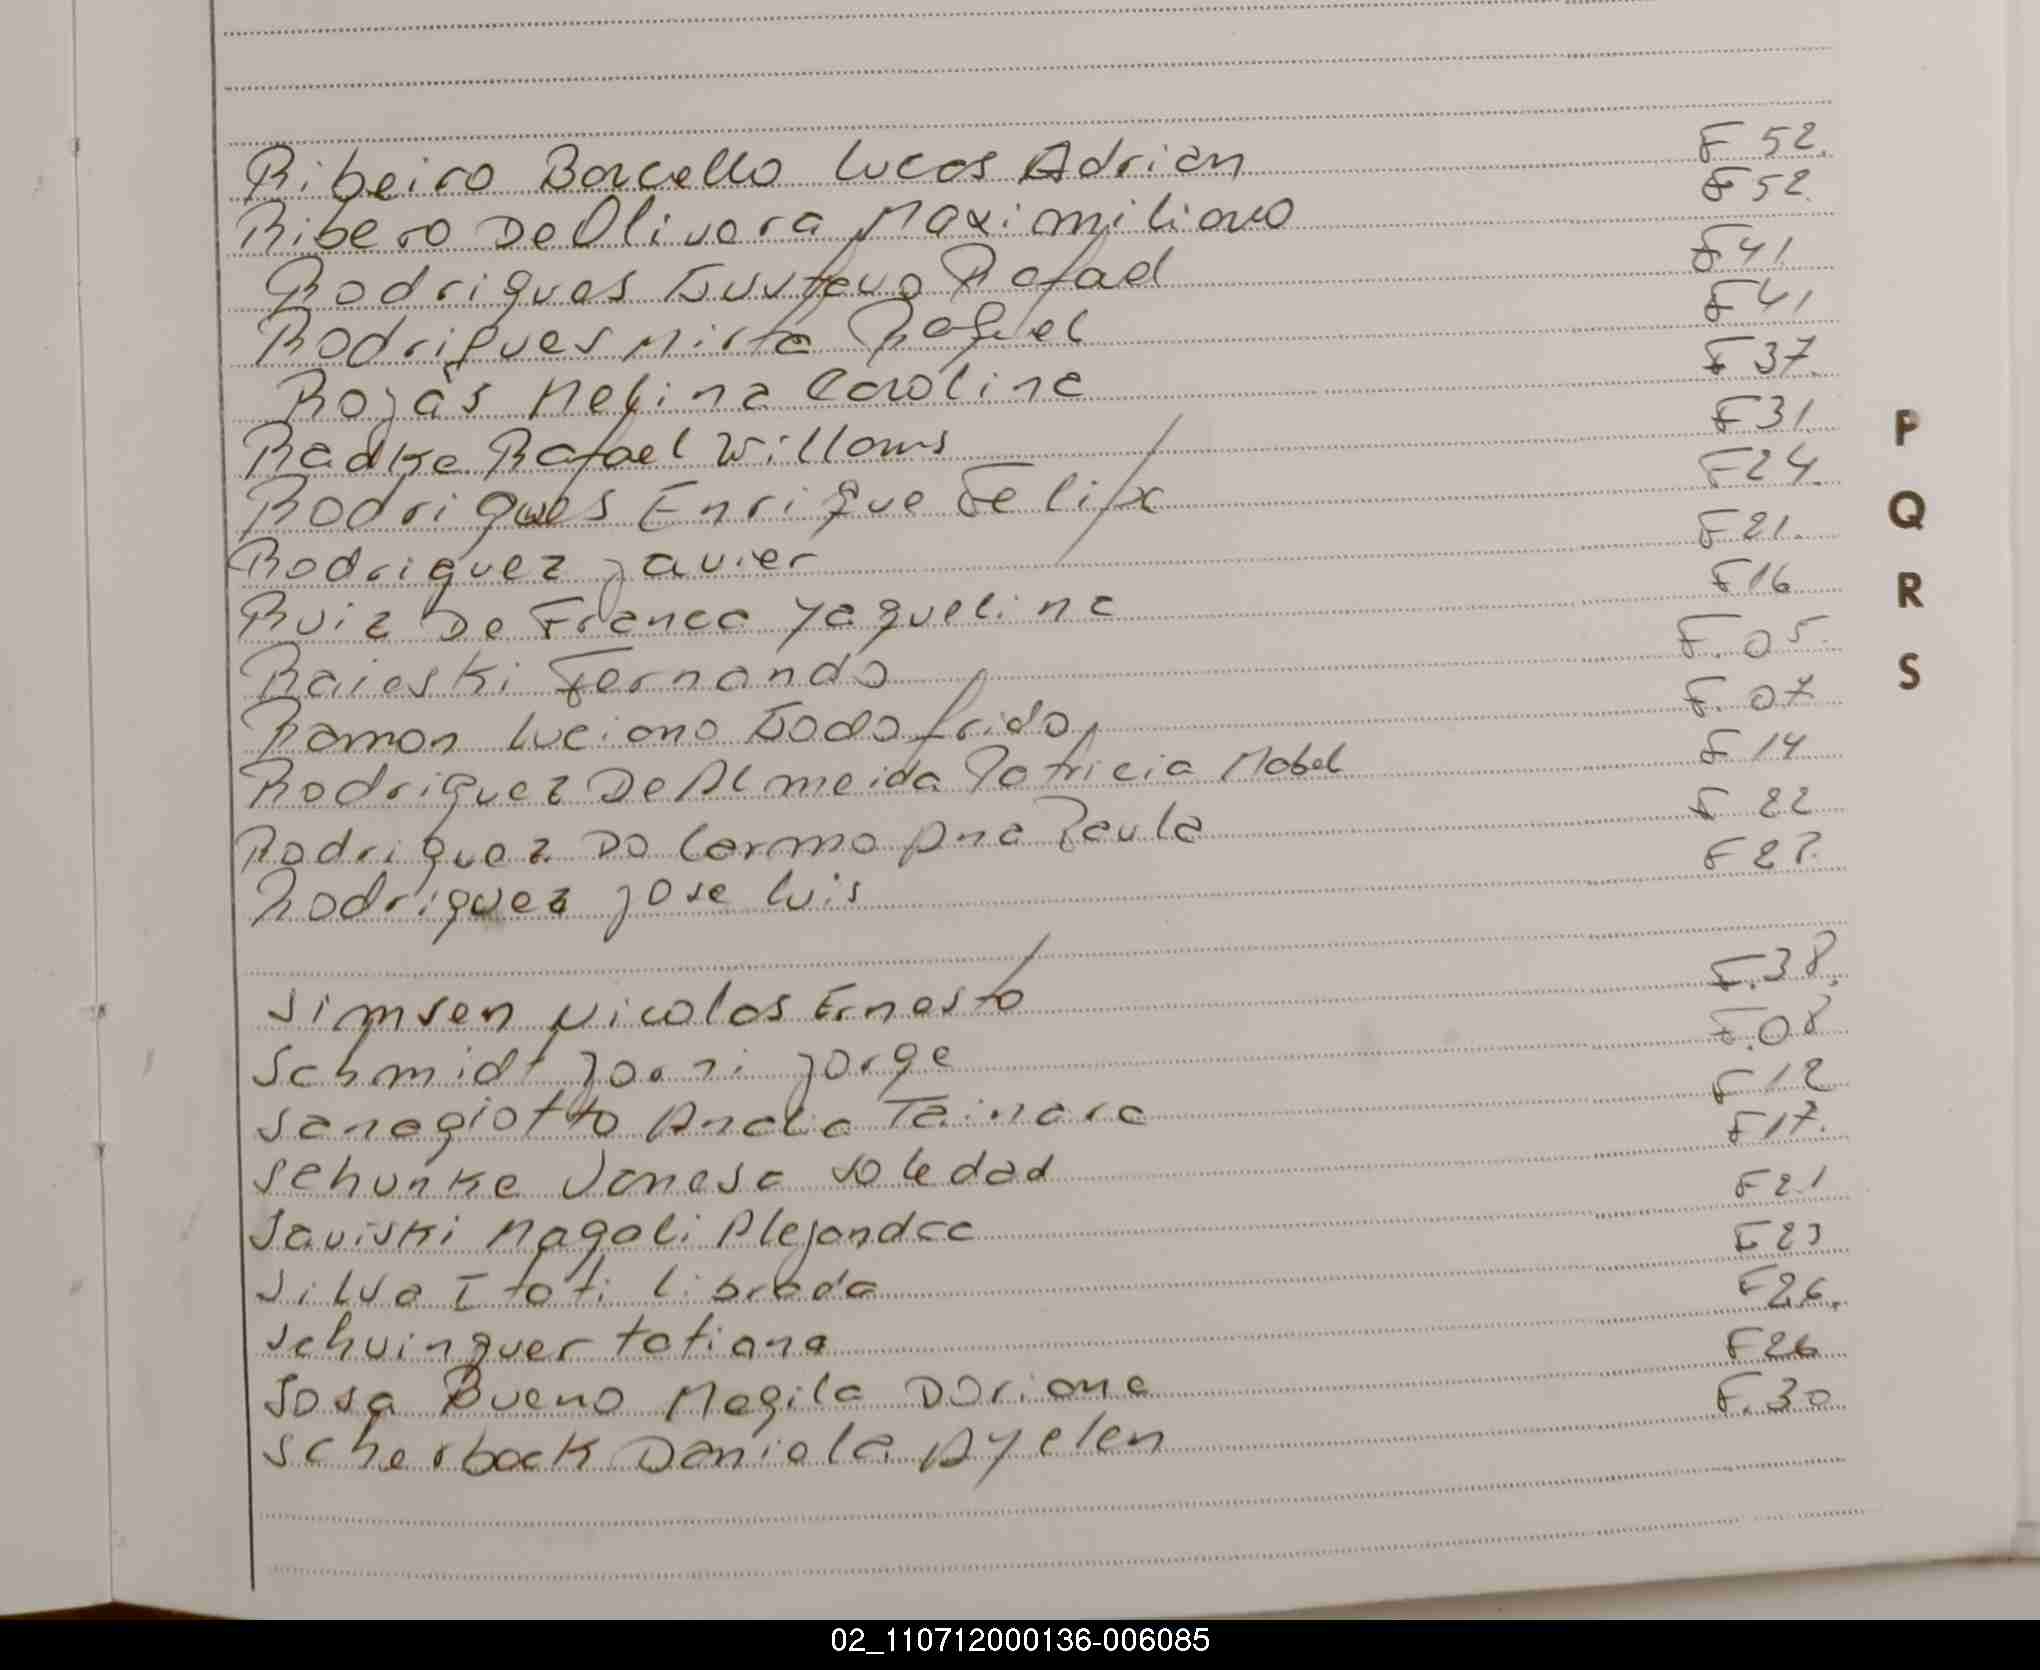 Ribeiro Barcello Lucas Adrian F 52.
Ribero De Olivera Maximiliano F 52.
Rodrigues Gustavo Rafael F 41
Rodrigues Mirta Raquel F 41
Rojas Melina Carolina F 37.
Radke Rafael Willams F 31.
Rodrigues Enrique Felix F 24.
Rodriguez Javier F 21.
Ruiz De Franca Yaquelina F 16
Raieski Fernando F. 05.
Ramon Luciano Godofrido F. 07
Rodriguez De Almeida Patricia Mabel F 14
Rodriguez Do Carmo Ana Paula F 22
Rodriguez Jose Luis F 28.
Simsen Nicolas Ernesto F. 38.
Schmidt Joani Jorge F. 08
Sanagiotto Analia Tainara F 12
Schunke Vanesa Soledad F 17.
Saviski Magali Alejandra F 21
Silva Itati Librada F 23
Schuinguer Tatiana F 26.
Sosa Bueno Magila Doriana F 26
Scherback Daniela Ayelen F. 30
P
Q
R
S
02_110712000136-006085